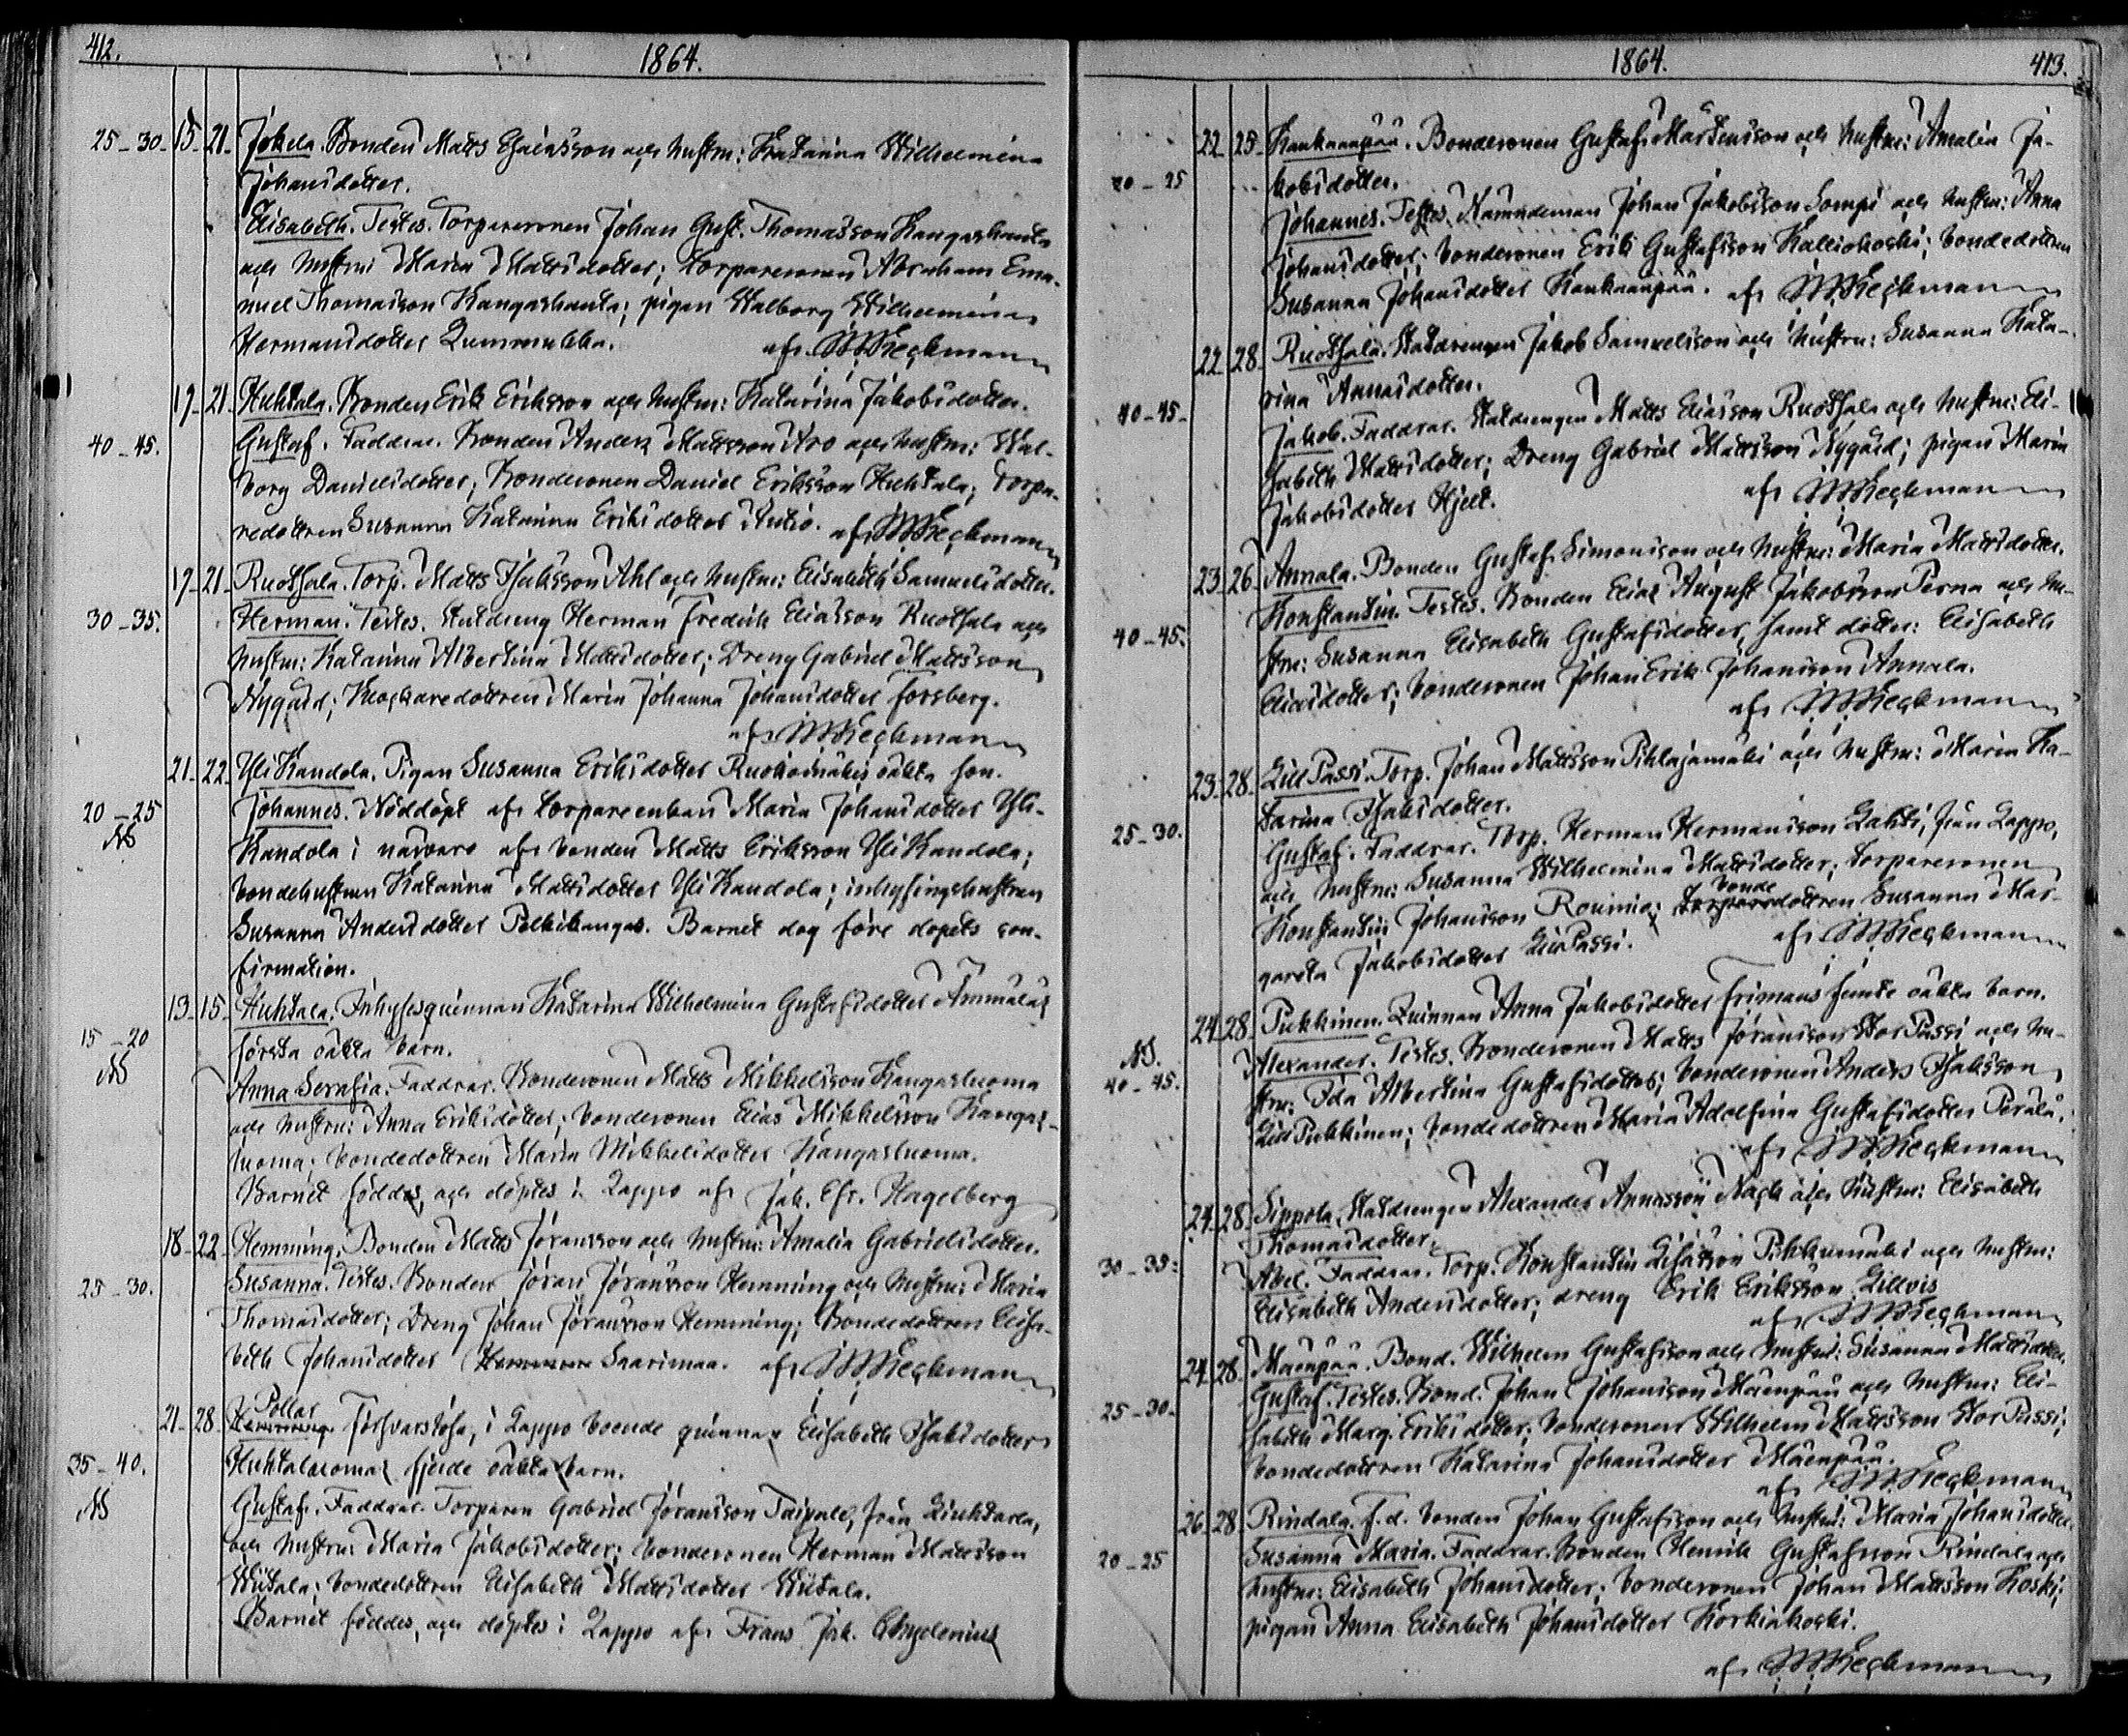 412.
1864.
25-30. 15. 21. Jokela. Bonden Matts Esaiasson och hustru: Katarina Wilhelmina
Johansdotter.
Elisabeth. Testes. Torparesonen Johan Gust. Thomasson Kangashauta
och hustru Maria Mattsdotter; torparesonen Abraham Ema-
nuel Thomasson Kangashauta; pigan Walborg Wilhelmina
Hermansdotter Lummukka. af
17. 21. Huhtala. Bonden Erik Eriksson och hustru: Katarina Jakobsdotter.
40-45. Gustaf. Faddrar. Bonden Anders Mattsson Aro och hustru: Wal-
borg Danielsdotter; Bondesonen Daniel Eriksson Huhtala; torpa-
redottren Susanna Katarina Eriksdotter Antio. af
17. 21. Ruotsala. Torp. Matts Isaksson Ahl och hustru: Elisabeth Samuelsdotter.
30-35. Herman. Testes. Statdreng Herman Fredrik Eliasson Ruotsala och
hustru: Katarina Albertina Mattsdotter; Dreng Gabriel Mattsson
Nygård; Klockaredottren Maria Johanna Johansdotter Forsberg.
af
21. 22. Yli Kandola. Pigan Susanna Eriksdotter Ruohoinäkis oäkta son.
20-25 Johannes. Nöddöpt af torpareenkan Maria Johansdotter Yli-
NB Kandola i närvaro af bonden Matts Eriksson Yli Kandola;
bondehustrun Katarina Mattsdotter Yli Kandola; inhysingshustrun
Susanna Andersdotter Pelkikangas. Barnet dog före dopets con-
firmation.
13. 15. Huhtala. Inhysesqvinnan Katarina Wilhelmina Gustafsdotter Ammäläs
15-20 första oäkta barn.
NB Anna Serafia. Faddrar. Bondesonen Matts Mikkelsson Kangasluoma
och hustru: Anna Eriksdotter; bondesonen Elias Mikkelsson Kangas-
luoma; bondedottren Maria Mikkelsdotter Kangasluoma.
Barnet föddes, och döptes i Lappo af Jak. Efr. Hagelberg
18. 22. Hemming. Bonden Matts Jöransson och hustru: Amalia Gabrielsdotter.
25-30. Susanna. Testes. Bonden Jöran Jöransson Hemming och hustru: Maria
Thomasdotter; Dreng Johan Jöransson Hemming; Bondedottren Elisa-
beth Johansdotter Saarimaa. af
Pollar
21. 28. Hemming. försvarslösa, i Lappo boende qvinnan Elisabeth Isaksdotter
35-40. Huhtalasomas fjerde oäkta barn.
NB Gustaf. Faddrar. Torparen Gabriel Jöransson Taipale, från Liuhtarla,
och hustru: Maria Jakobsdotter; bondesonen Herman Mattsson
Wiitala; bondedottren Elisabeth Mattsdotter Wiitala.
Barnet föddes, och döptes i Lappo af Frans Joh.
1864.
413.
22. 25. Kauhanpää. Bondesonen Gustaf Mårtensson och hustru: Amalia Ja-
20-25 kobsdotter.
Johannes. Testes. Nämndeman Johan Jakobsson Lompi och hustru: Anna
Johansdotter; bondesonen Erik Gustafsson Kalliokoski; bondedottren
Susanna Johansdotter Kauhanpää. af
22. 28. Ruotsala. Statdrengen Jakob Samuelsson och hustru: Susanna Kata-
rina Annasdotter.
40-45. Jakob. Faddrar. Statdrengen Matts Eliasson Ruotsala och hustru: Eli-
sabeth Mattsdotter; Dreng Gabriel Mattsson Nygård; pigan Maria
Jakobsdotter Hjelt. af
23. 26. Annala. Bonden Gustaf Simonsson och hustru: Maria Mattsdotter.
Konstantin. Testes. Bonden Elias August Jakobsson Perna och hu-
40-45. stru: Susanna Elisabeth Gustafsdotter, samt dotter: Elisabeth
Eliasdotter; bondesonen Johan Erik Johansson Annala.
af
23. 28. Lill Passi. Torp. Johan Mattsson Pihlajamäki och hustru: Maria Ka-
tarina Isaksdotter.
25-30. Gustaf. Faddrar. Torp. Herman Hermansson Lahti, från Lappo,
och hustru: Susanna Wilhelmina Mattsdotter; torparesonen
bonde
Konstantin Johansson Rouinia; torparedottren Susanna Mar-
gareta Jakobsdotter Lill Passi. af
24. 28. Pukkinen. Qvinnan Anna Jakobsdotter Frimans femte oäkta barn.
NB. Alexander. Testes. Bondesonen Matts Jöransson Stor Passi och hu-
40-45. stru: Ida Albertina Gustafsdotter; bondesonen Anders Isaksson
Lill Pukkinen; bondedottren Maria Adolfina Gustafsdotter Perälä.
af
24. 28. Sippola. Statdrengen Alexander Annasson Näck och hustru: Elisabeth
Thomasdotter.
30-35: Abel. Faddrar. Torp. Konstantin Pukkimäki och hustru:
Elisabeth Andersdotter; dreng Erik Eriksson Lillvis
af
24. 28. Mäenpää. Bond. Wilhelm Gustafsson och hustru: Susanna Mattsdotter.
25-30. Gustaf. Testes. Bond. Johan Johansson Mäenpää och hustru: Eli-
sabeth Marg. Eriksdotter; bondesonen Wilhelm Mattsson Stor Passi;
bondedottren Katarina Johansdotter Mäenpää.
af
26. 28 Rindala. f.d. bonden Johan Gustafsson och hustru: Maria Johansdotter.
20-25 Susanna Maria. Faddrar. Bonden Henrik Gustafsson Rindala och
hustru: Elisabeth Johansdotter; bondesonen Johan Mattsson Koski;
pigan Anna Elisabeth Johansdotter Korkiakoski.
af